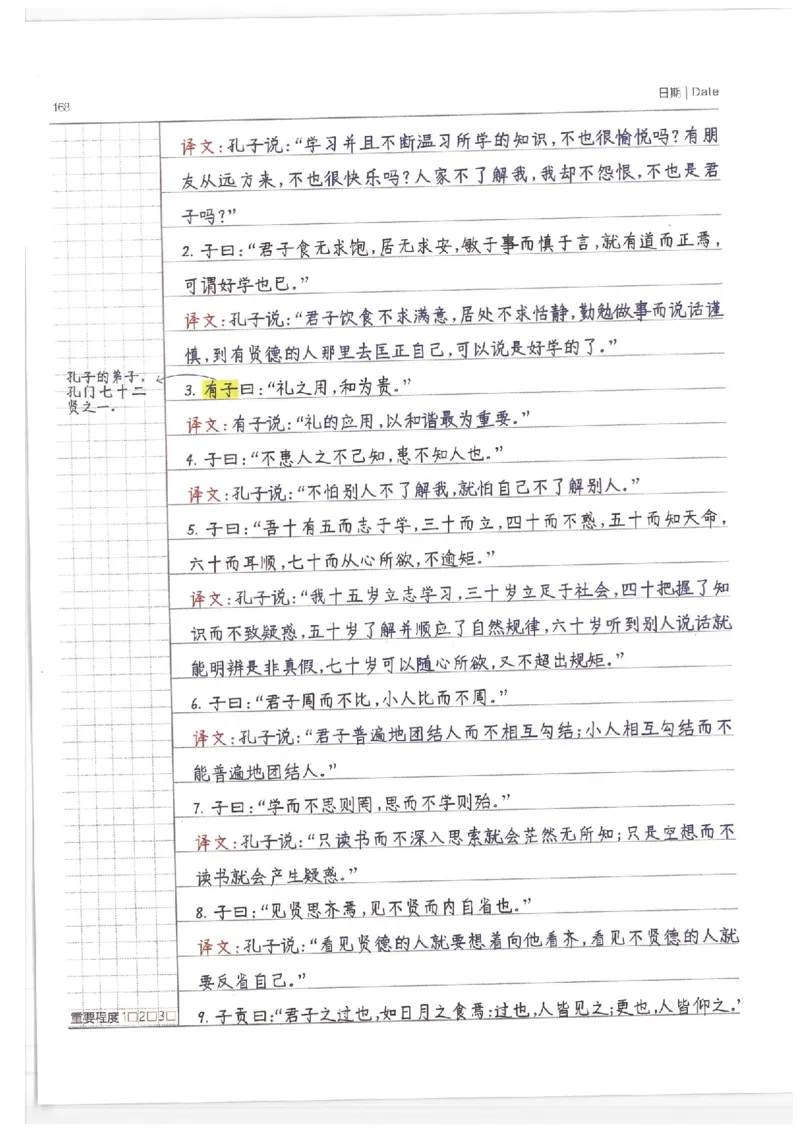 168
日期 | Date
译文:孔子说:“学习并且不断温习所学的知识,不也很愉悦吗?有朋
友从远方来,不也很快乐吗?人家不了解我,我却不怨恨,不也是君
子吗?”
2. 子曰:“君子食无求饱,居无求安,敏于事而慎于言,就有道而正焉,
可谓好学也已。”
译文:孔子说:“君子饮食不求满意,居处不求恬静,勤勉做事而说话谨
慎,到有贤德的人那里去匡正自己,可以说是好学的了。”
孔子的弟子,
孔门七十二
贤之一。
3. 有子曰:“礼之用,和为贵。”
译文:有子说:“礼的应用,以和谐最为重要。”
4. 子曰:“不患人之不己知,患不知人也。”
译文:孔子说:“不怕别人不了解我,就怕自己不了解别人。”
5. 子曰:“吾十有五而志于学,三十而立,四十而不惑,五十而知天命,
六十而耳顺,七十而从心所欲,不逾矩。”
译文:孔子说:“我十五岁立志学习,三十岁立足于社会,四十把握了知
识而不致疑惑,五十岁了解并顺应了自然规律,六十岁听到别人说话就
能明辨是非真假,七十岁可以随心所欲,又不超出规矩。”
6. 子曰:“君子周而不比,小人比而不周。”
译文:孔子说:“君子普遍地团结人而不相互勾结;小人相互勾结而不
能普遍地团结人。”
7. 子曰:“学而不思则罔,思而不学则殆。”
译文:孔子说:“只读书而不深入思索就会茫然无所知;只是空想而不
读书就会产生疑惑。”
8. 子曰:“见贤思齐焉,见不贤而内自省也。”
译文:孔子说:“看见贤德的人就要想着向他看齐,看见不贤德的人就
要反省自己。”
重要程度 1□2□3□
9. 子贡曰:“君子之过也,如日月之食焉:过也,人皆见之;更也,人皆仰之。”